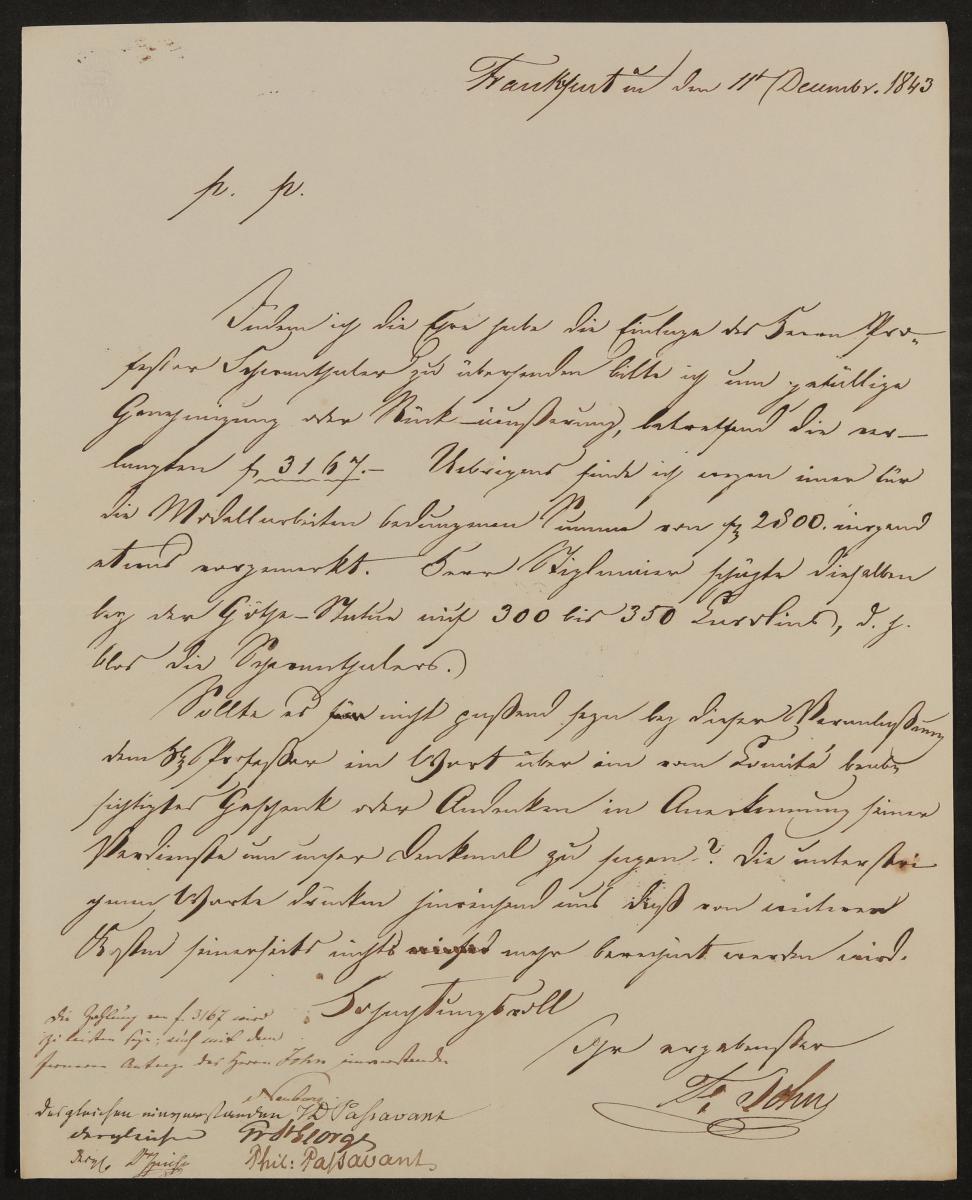 Frankfurt a/m den 11t Decembr. 1843
p. p.
Indem ich die Ehre habe die Einlage des Herrn Pro-
fessor Schwanthaler zu übersenden bitte ich um gefällige
Genehmigung oder Rück-äußerung, betreffend die ver-
langten f 3167.- Uebrigens finde ich wegen einer für
die Modellarbeiten bedungenen Summe von f 2800. nirgend
etwas vorgemerkt. Herr Stiglmaier schäzte dieselben
bey der Göthe-Statue auf 300 bis 350 Carolins, d. h.
blos die Schwanthalers.
Sollte es nicht passend seyn bey dieser Veranlassung
dem Hr Professor ein Wort über ein vom Comité beab-
sichtigtes Geschenk oder Andenken in Anerkennung seiner
Verdienste um unser Denkmal zu sagen? Die unterstri-
chenen Worte drücken hinreichend aus daß von weiteren
Kosten seinerseits nichts mehr berechnet werden wird.
Hochachtungsvoll
Ihr ergebenster
Fr John
Die Zahlung von f. 3167 wird
zu leisten seyn; auch mit dem
ferneren Antrage des Herrn John einverstanden
Neuburg
desgleichen einverstanden JD Passavant
dergleichen Fr StGeorge
Desgl. Dr Spiess Phil: Passavant